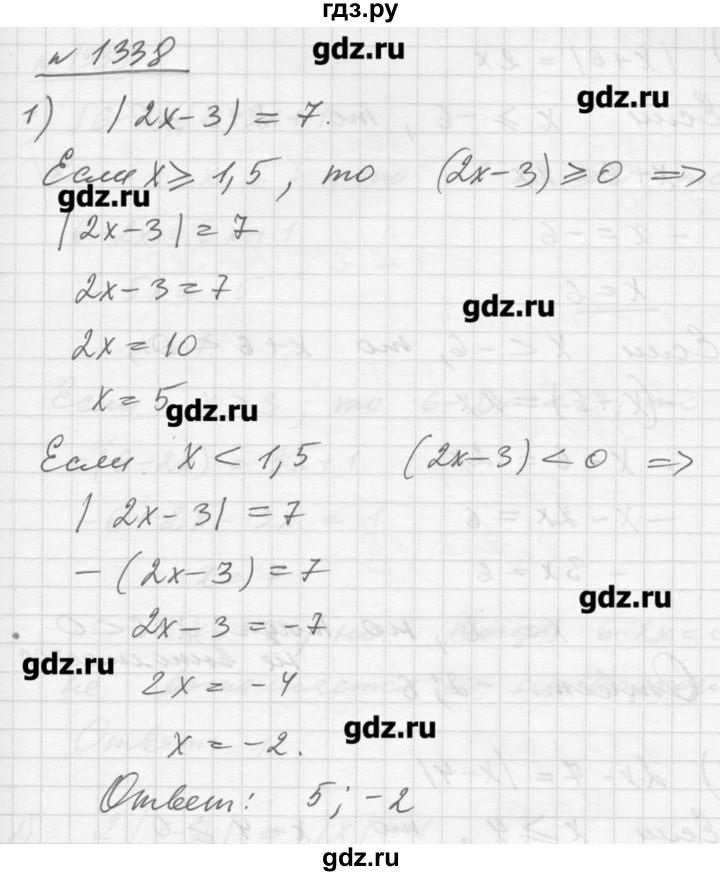 гдз.ру
gdz.ru
№ 1338
gdz.ru
1) |2x-3| = 7.
Если x ⩾ 1,5, то (2x-3) ⩾ 0 =>
gdz.ru
|2x-3| = 7
2x-3 = 7
gdz.ru
2x = 10
x = 5
gdz.ru
Если x < 1,5 (2x-3) < 0 =>
|2x-3| = 7
-(2x-3) = 7
gdz.ru
2x-3 = -7
gdz.ru
2x = -4
gdz.ru
x = -2.
Ответ: 5; -2
gdz.ru